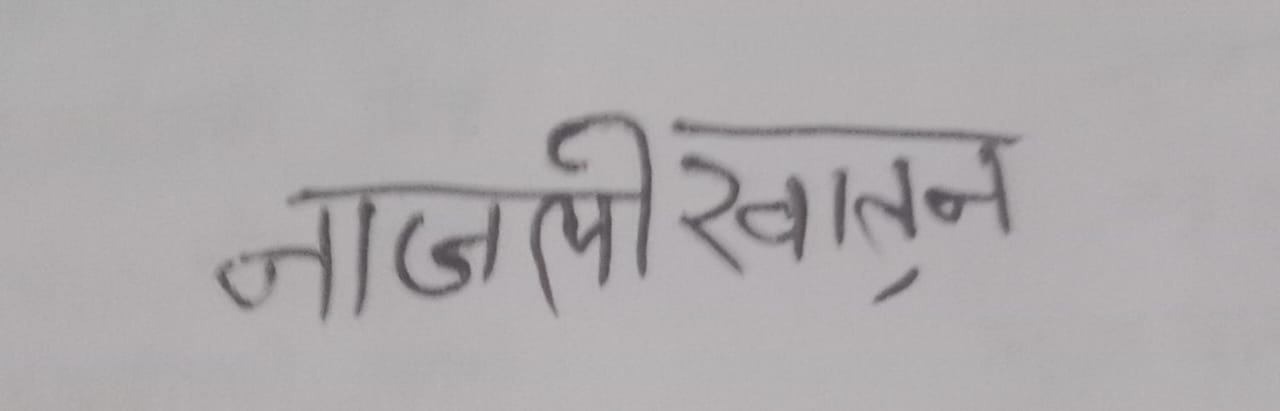 नाजली खातुन